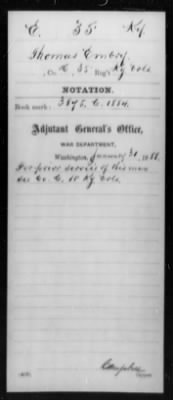 E. 35 Ky
Thomas Embry
, Co. C, 35 Reg't Ky Vols
NOTATION.
Book mark: 3875. C. 1884.
Adjutant General's Office,
WAR DEPARTMENT,
Washington, January 31, 1888.
For prior service of this man
see Co. C. Ky Vols.
Campbell